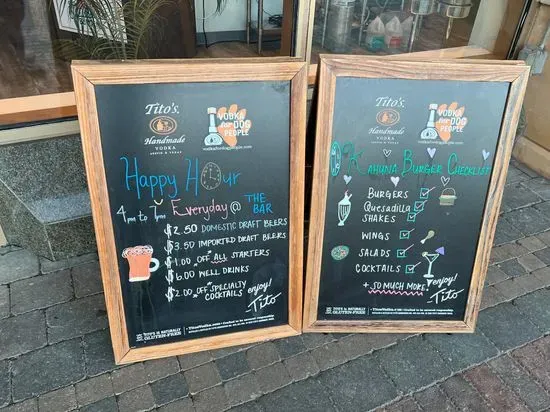 Tito's
Handmade
VODKA
AUSTIN TEXAS
VODKA
for DOG
PEOPLE
vodkafordogpeople.com
Happy Hour
4pm to 6pm Everyday @ THE BAR
$2.50 DOMESTIC DRAFT BEERS
$3.50 IMPORTED DRAFT BEERS
$1.00 OFF ALL STARTERS
$6.00 WELL DRINKS
$2.00 OFF SPECIALTY
COCKTAILS
enjoy!
Tito
TITO'S IS NATURALLY
GLUTEN-FREE
TitosVodka.com
Tito's
Handmade
VODKA
AUSTIN TEXAS
VODKA
for DOG
PEOPLE
vodkafordogpeople.com
KAHUNA BURGER CHECKLIST
BURGERS
QUESADILLA
SHAKES
WINGS
SALADS
COCKTAILS
+ SO MUCH MORE
enjoy!
Tito
TITO'S IS NATURALLY
GLUTEN-FREE